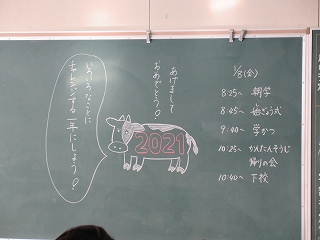 あけまして
おめでとう！
いろいろなことに
チャレンジする一年にしよう！
2021
1/8(金)
8:25～ 朝学
8:45～ 始ぎょう式
9:40～ 学かつ
10:25～ かんたんそうじ
帰りの会
10:40～ 下校